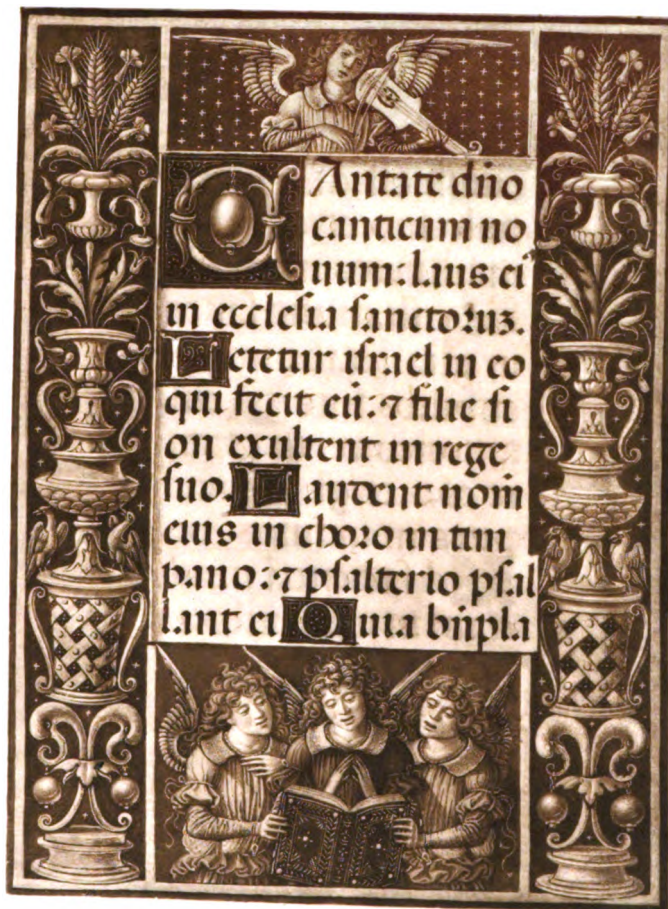 CAntate dño
canticum no
uum: laus ei
in ecclesia sanctoꝝ.
Letetur israel in eo
qui fecit eū: ⁊ filie si
on exultent in rege
suo. Laudent nom̄
eius in choro in tim
pano: ⁊ psalterio psal
lant ei Quia bn̄pla